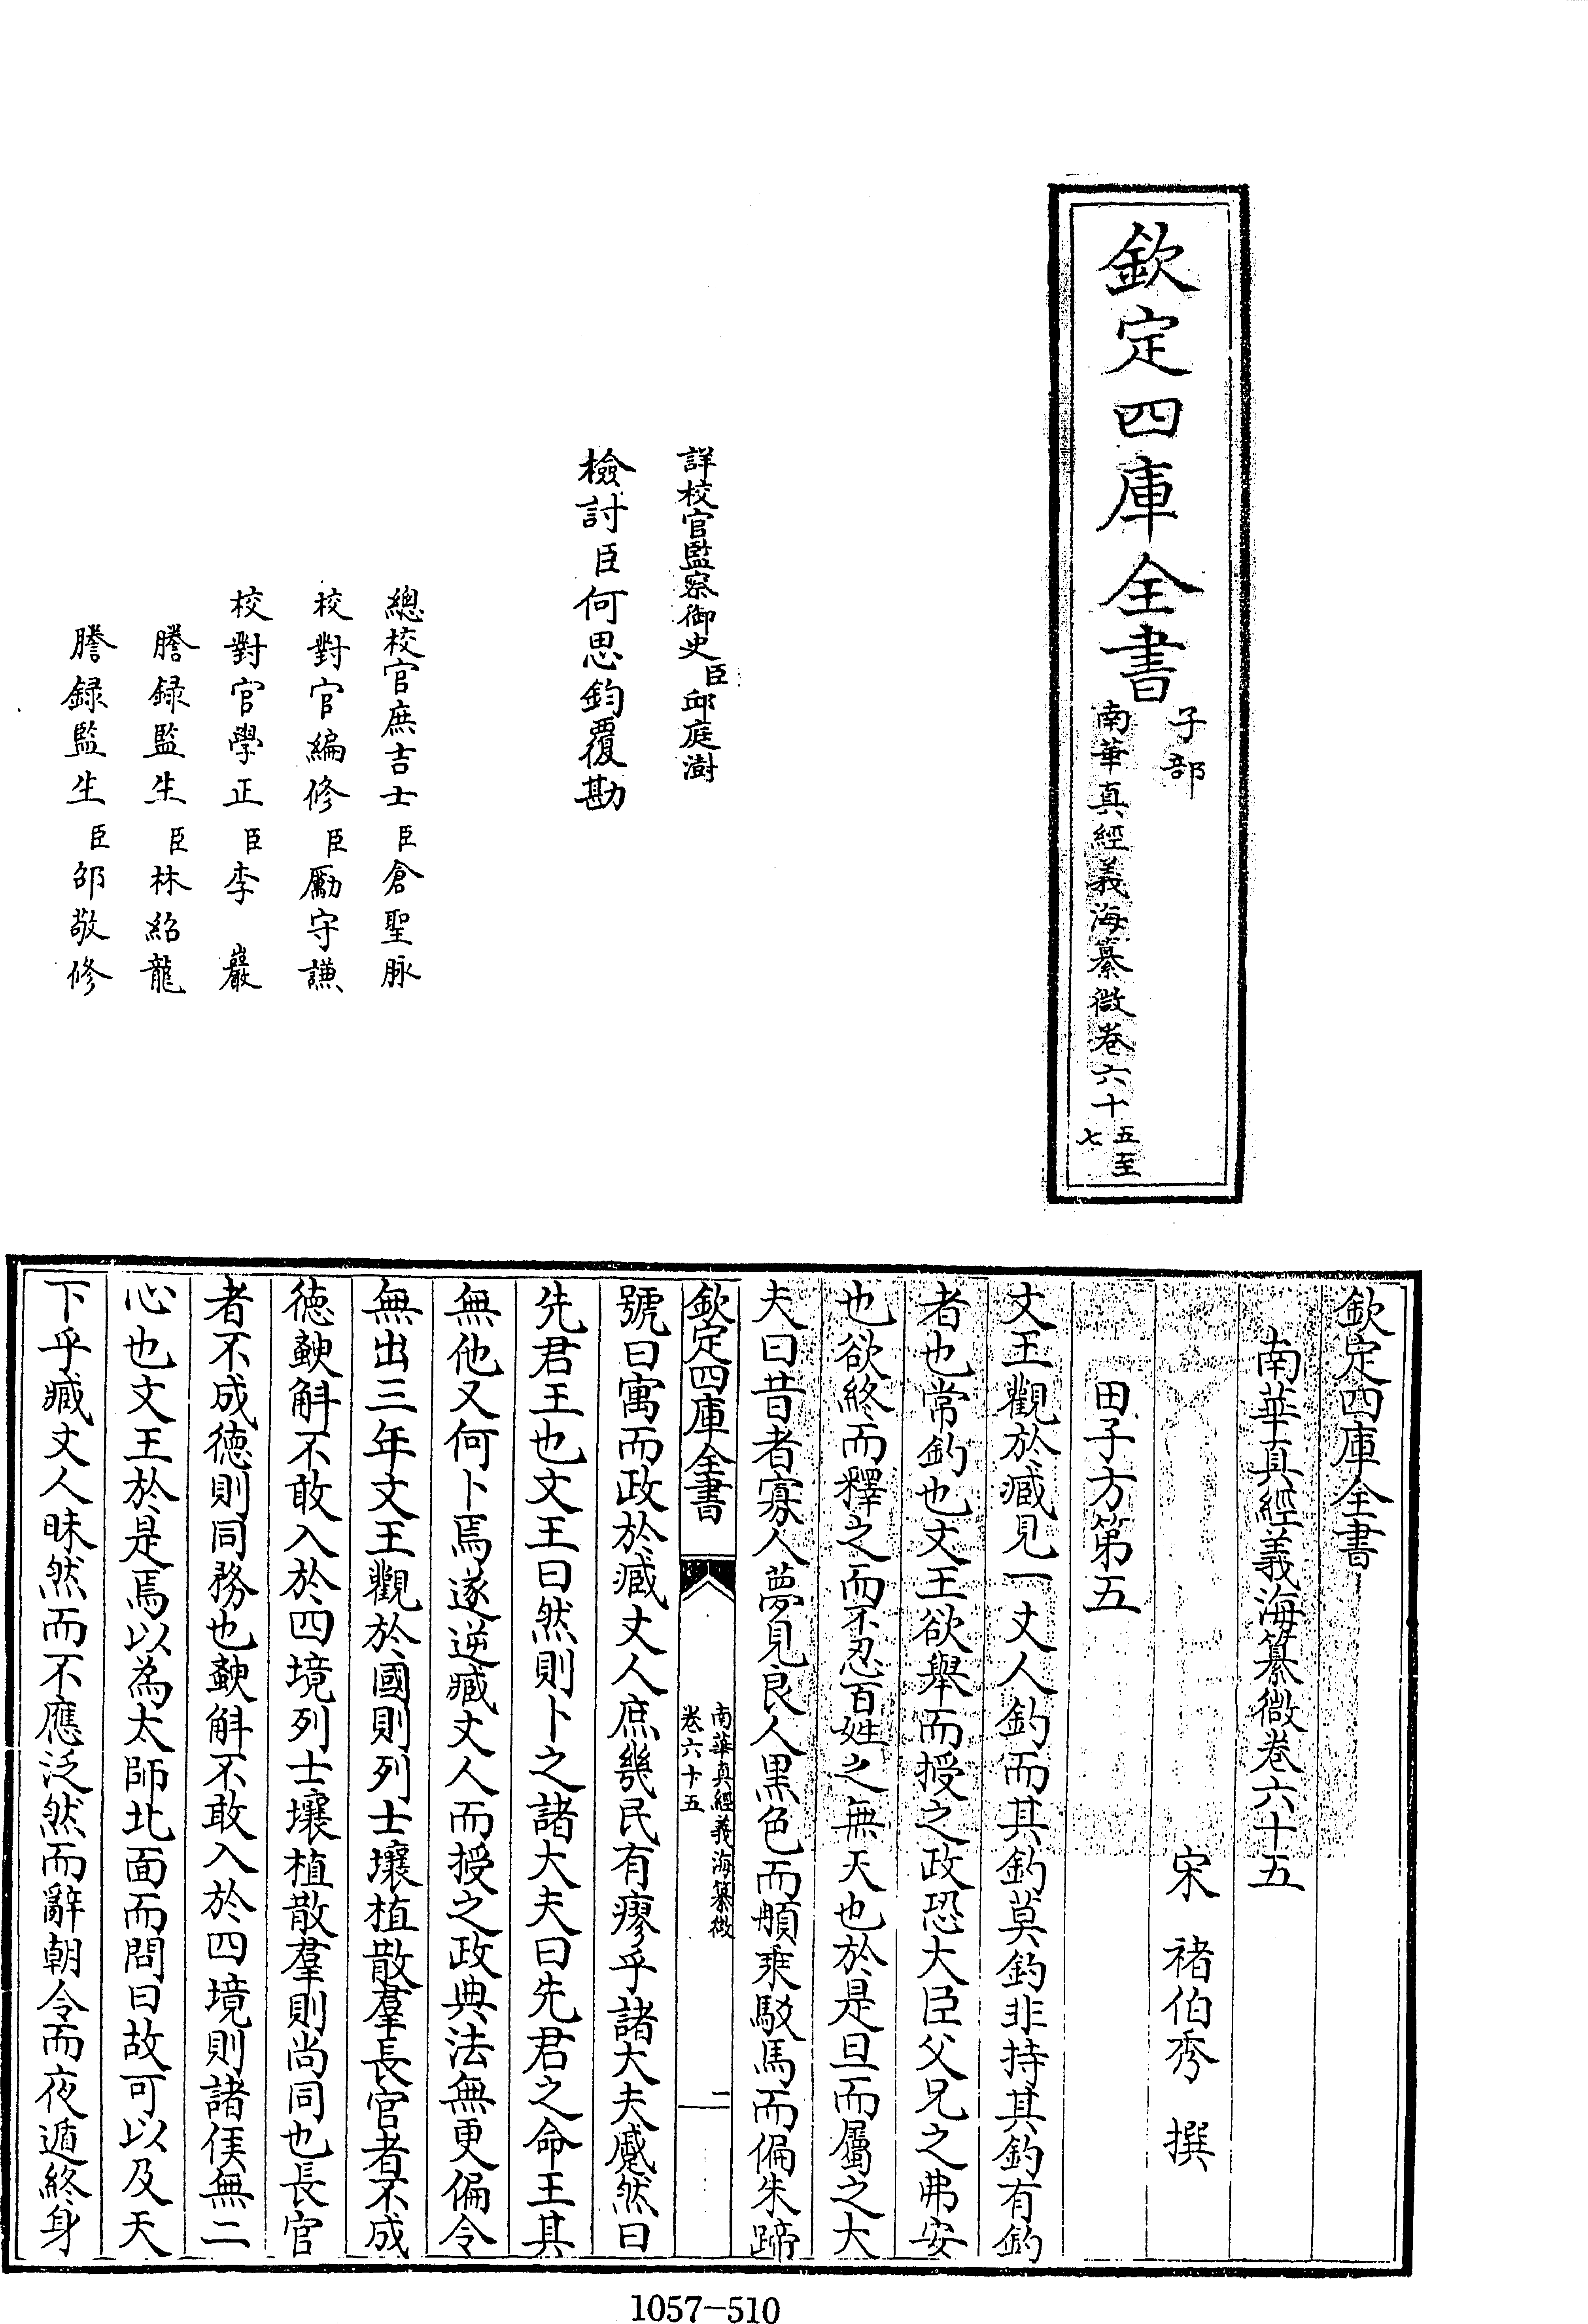 欽定四庫全書
子部
南華真經義海纂微卷六十五至七
詳校官監察御史臣邱庭澍
檢討臣何思鈞覆勘
總校官庶吉士臣倉聖脉
校對官編修臣勵守謙
校對官學正臣李巖
謄録監生臣林紹龍
謄録監生臣邵敬修
欽定四庫全書
南華真經義海纂微卷六十五
宋 禇伯秀 撰
田子方第五
文王觀於臧見一丈人釣而其釣莫釣非持其釣有釣
者也常釣也文王欲舉而授之政恐大臣父兄之弗安
也欲終而釋之而不忍百姓之無天也於是旦而屬之大
夫曰昔者寡人夢見良人黒色而䫇乘駁馬而偏朱蹄
欽定四庫全書
南華真經義海纂微
卷六十五
二
號曰寓而政於臧丈人庶幾民有瘳乎諸大夫蹙然曰
先君王也文王曰然則卜之諸大夫曰先君之命王其
無他又何卜焉遂迎臧丈人而授之政典法無更偏令
無出三年文王觀於國則列士壞植散羣長官者不成
徳䠶斛不敢入於四境列士壞植散羣則尚同也長官
者不成徳則同務也䠶斛不敢入於四境則諸侯無二
心也文王於是焉以為太師北面而問曰故可以及天
下乎臧丈人昧然而不應泛然而辭朝令而夜遁終身
1057-510